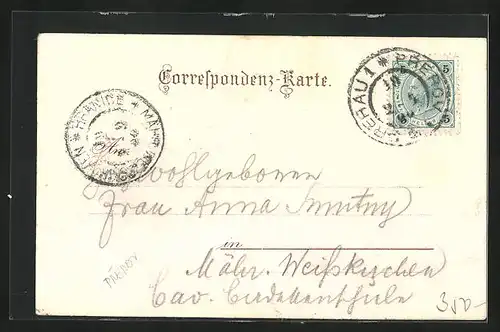 Correspondenz-Karte.
PRERAU 1 * PŘEROV
5
5
* HRANICE * MÄHR. WEISSKIRCHEN
Wohlgeboren
Frau Anna
in
Mähr. Weißkirchen
Cav. Cadettenschule
PŘEROV
350-